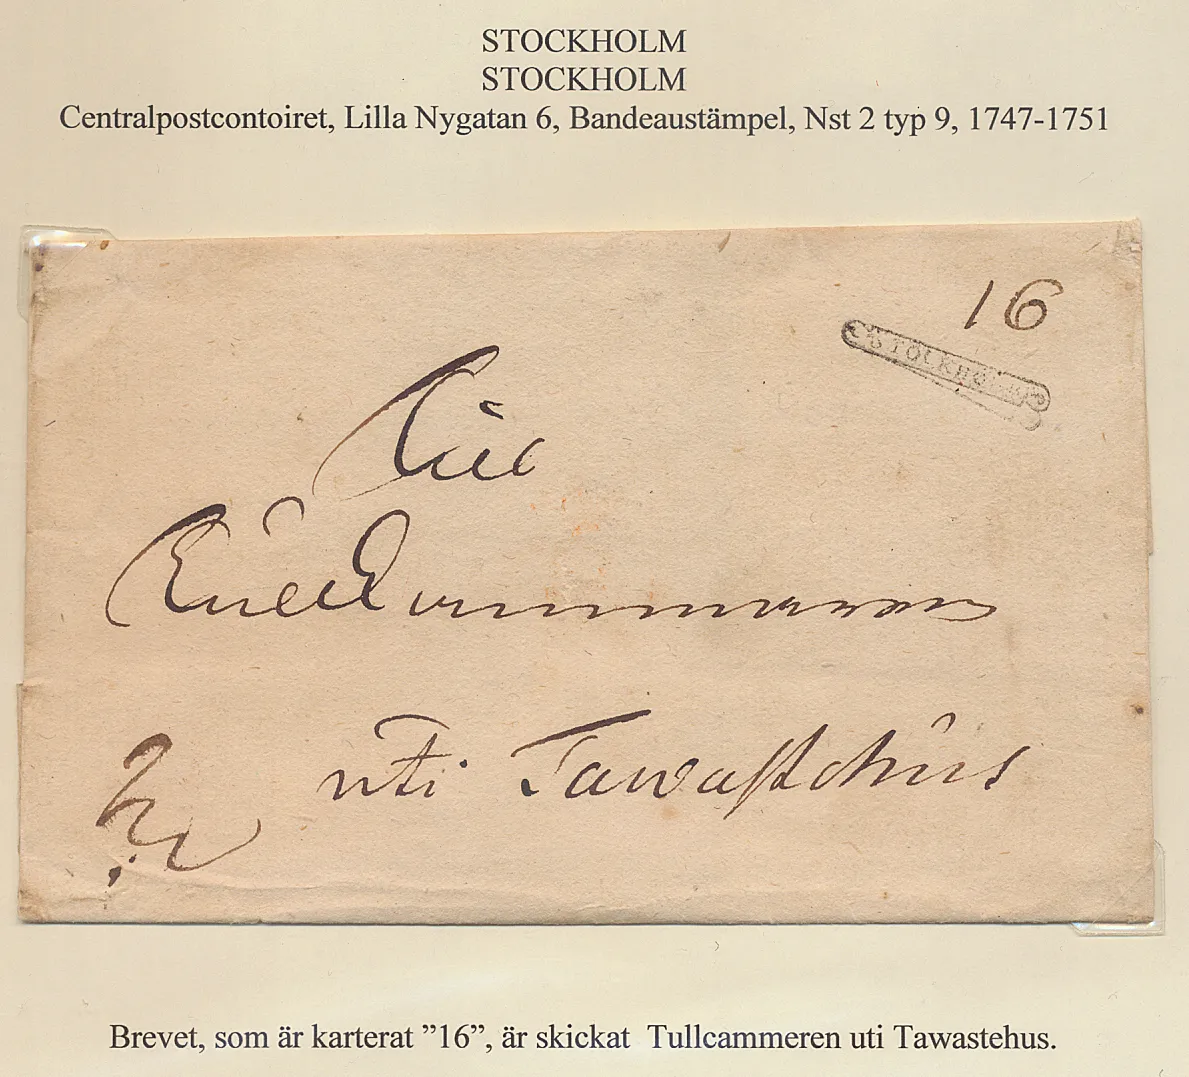 STOCKHOLM
STOCKHOLM
Centralpostcontoiret, Lilla Nygatan 6, Bandeaustämpel, Nst 2 typ 9, 1747-1751
16
STOCKHOLM
Till
uti Tawastehus
Brevet, som är karterat ”16”, är skickat Tullcammeren uti Tawastehus.